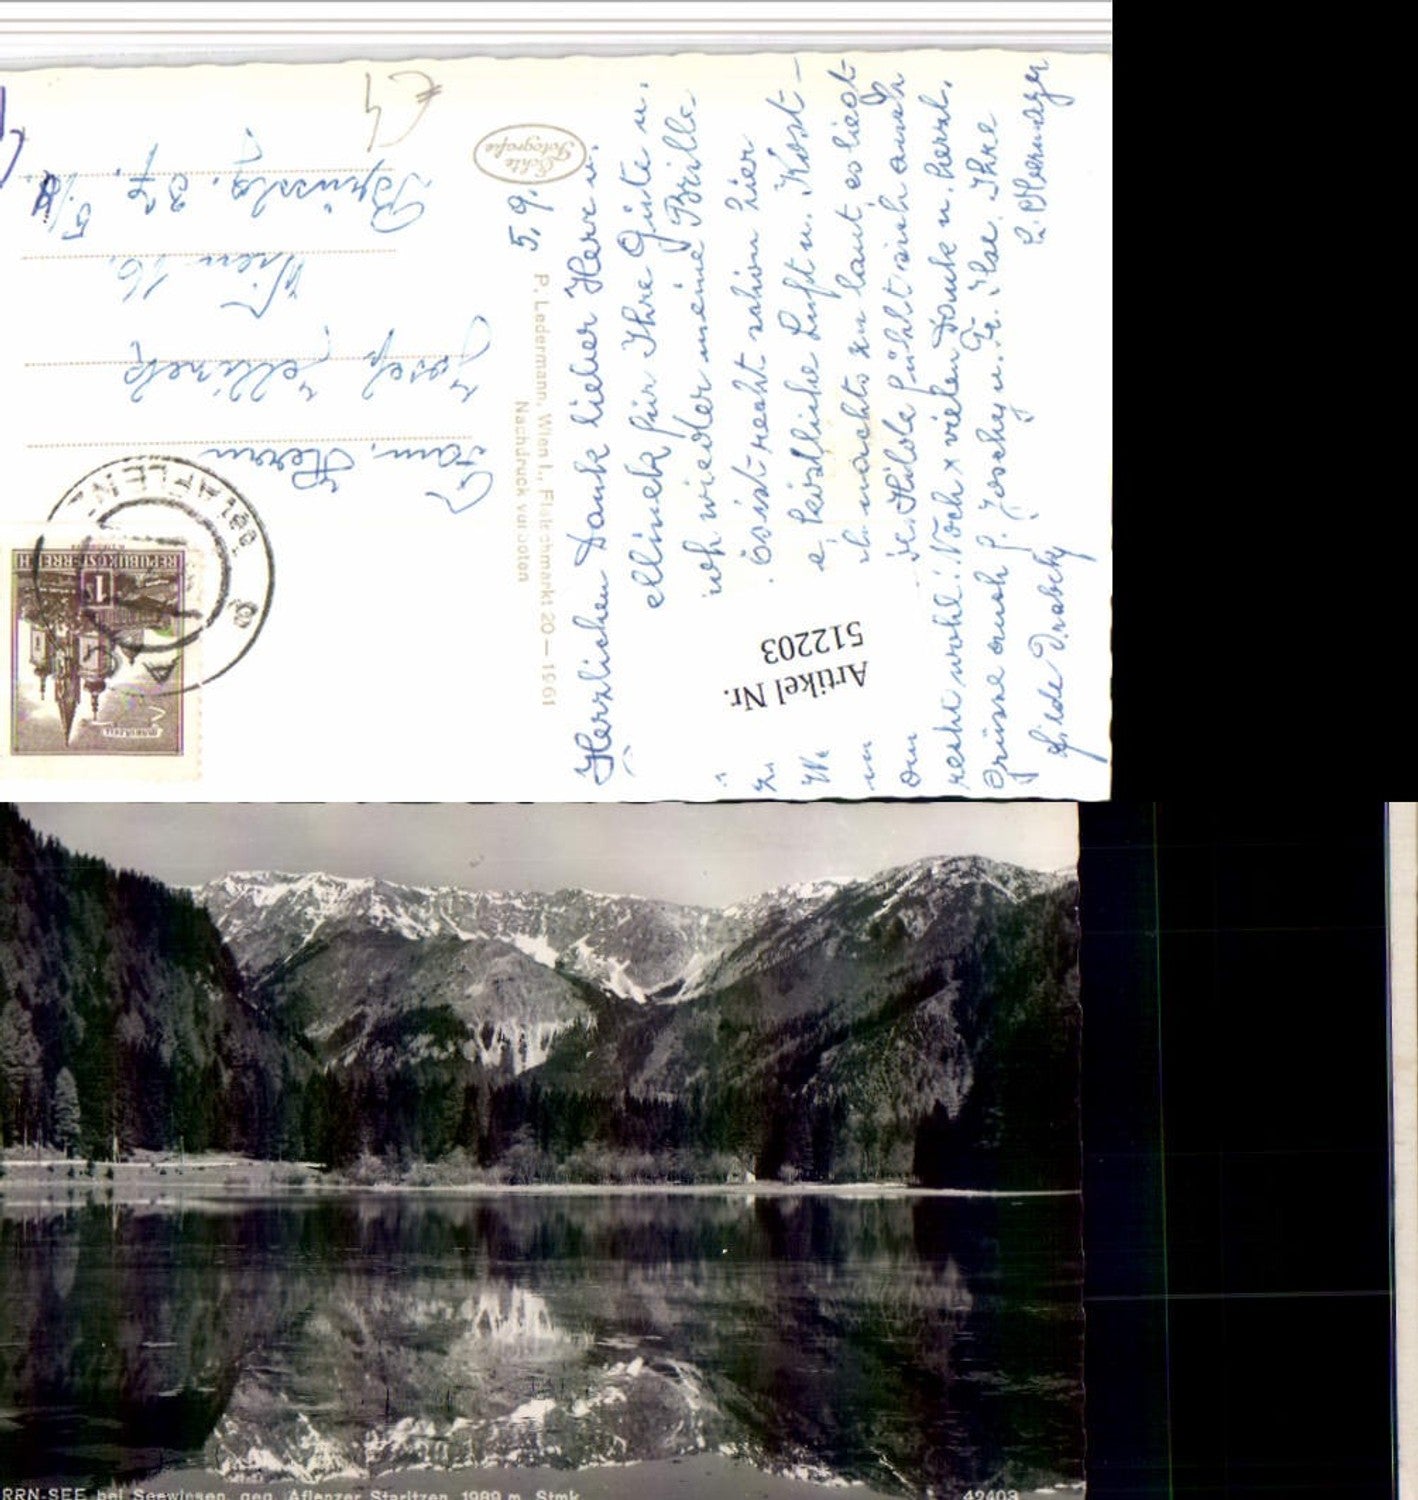 Herzlichen Dank lieber Herr u.
ellinek für Ihre Güte u.
ich wieder meine Brille
Es ist recht schön hier
köstliche Luft u. Kost-
zu laut, es liegt
Hilde fühlt sich auch
recht wohl. Noch x vielen Dank u. herzl.
Grüsse auch f. Joschy u. Fr. Ilse. Ihre
Hilde Drabek
5.9.
Echte
Fotografie
P. Ledermann, Wien I., Fleischmarkt 20 — 1961
Nachdruck verboten
Fam. Herrn
Josef Jellinek
Wien 16.
37, 5/
€ 4
AFLENZ
REPUBLIK ÖSTERREICH
1
MARIAZELL
Artikel Nr.
512203
RRN-SEE bei Seewiesen, geg. Aflenzer Staritzen 1989 m Stmk
42403